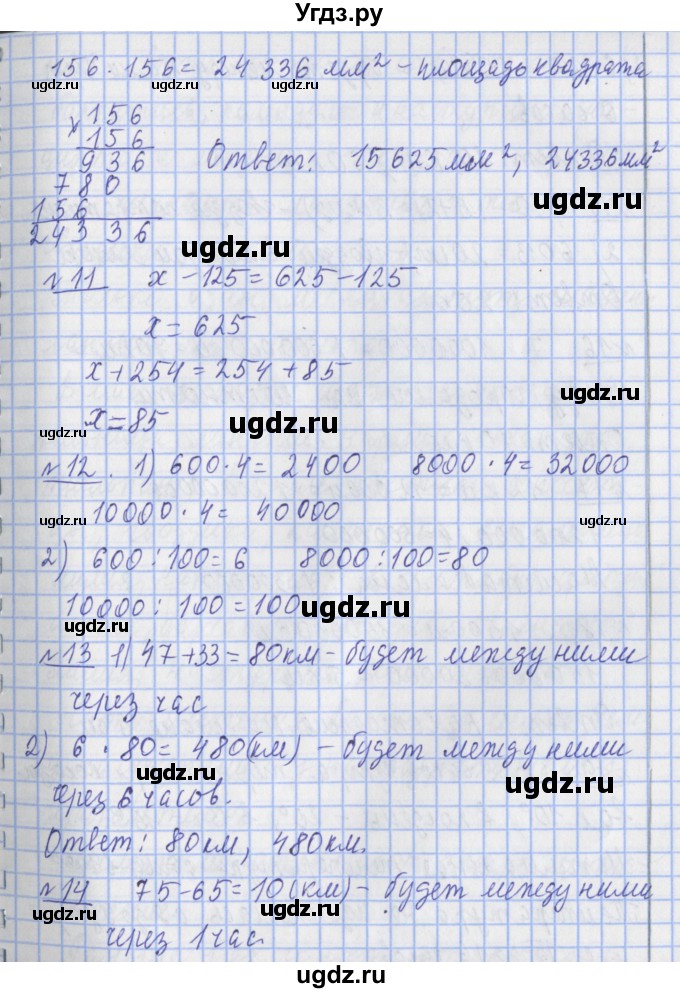 Угдз.ру
156 · 156 = 24 336 мм² – площадь квадрата
× 156
156
936 Ответ: 15625 мм², 24336 мм²
780
ugdz.ru
156
24336
ugdz.ru
№11 x – 125 = 625 – 125
ugdz.ru
x = 625
x + 254 = 254 + 85
ugdz.ru
x = 85
ugdz.ru
№12. 1) 600 · 4 = 2400 8000 · 4 = 32000
ugdz.ru 10000 · 4 = 40000 ugdz.ru
2) 600 : 100 = 6 8000 : 100 = 80
10000 : 100 = 100 ugdz.ru
ugdz.ru
№13 1) 47 + 33 = 80 км – будет между ними
через час ugdz.ru
2) 6 · 80 = 480 (км) – будет между ними
ugdz.ru ugdz.ru
через 6 часов.
Ответ: 80 км, 480 км.
ugdz.ru
№14 75 – 65 = 10 (км) – будет между ними
ugdz.ru ugdz.ru
через 1 час
ugdz.ru
ugdz.ru